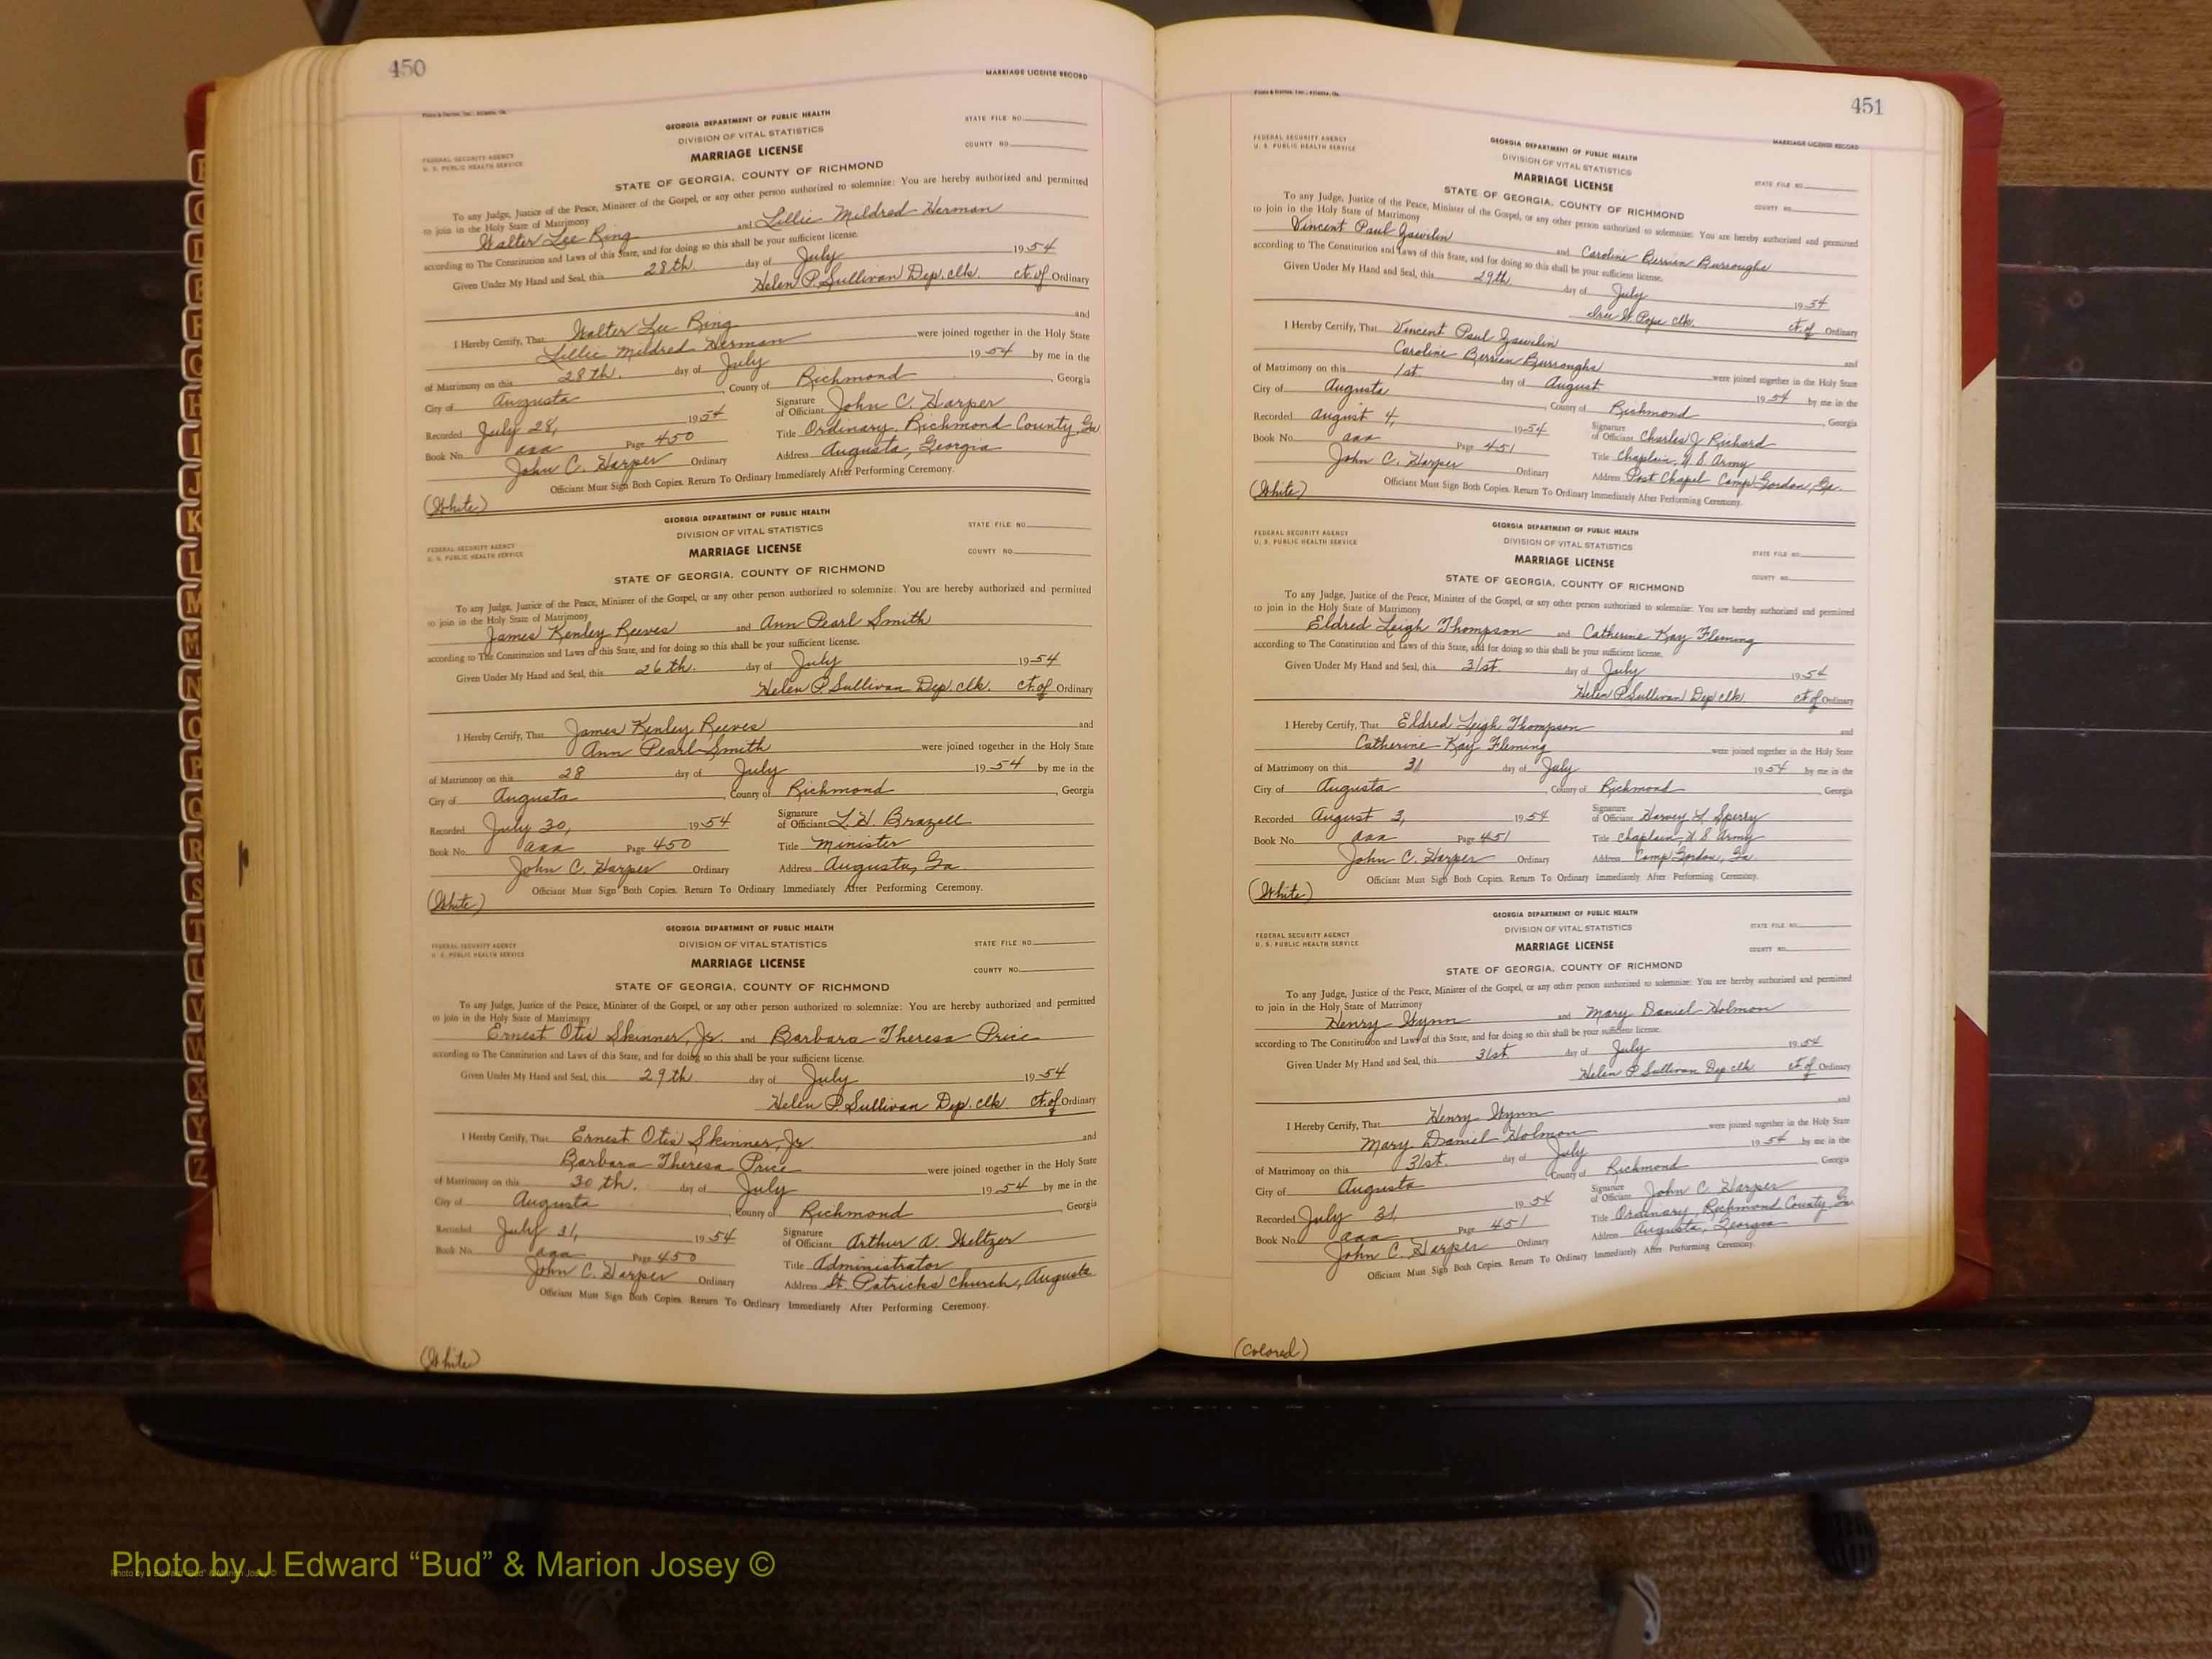 450
MARRIAGE LICENSE RECORD
GEORGIA DEPARTMENT OF PUBLIC HEALTH
DIVISION OF VITAL STATISTICS
STATE FILE NO.
FEDERAL SECURITY AGENCY
U. S. PUBLIC HEALTH SERVICE
MARRIAGE LICENSE
COUNTY NO.
STATE OF GEORGIA, COUNTY OF RICHMOND
To any Judge, Justice of the Peace, Minister of the Gospel, or any other person authorized to solemnize: You are hereby authorized and permitted
to join in the Holy State of Matrimony
Walter Lee Ring and Lillie Mildred Herman
according to The Constitution and Laws of this State, and for doing so this shall be your sufficient license.
Given Under My Hand and Seal, this 28th. day of July 1954
Helen P. Sullivan Dep. clk. ct. of Ordinary
I Hereby Certify, That Walter Lee Ring and
Lillie Mildred Herman were joined together in the Holy State
of Matrimony on this 28th. day of July 1954 by me in the
City of Augusta, County of Richmond, Georgia
Recorded July 28, 1954 Signature of Officiant John C. Harper
Book No. aaa Page 450 Title Ordinary, Richmond County, Ga
John C. Harper Ordinary Address Augusta, Georgia
Officiant Must Sign Both Copies. Return To Ordinary Immediately After Performing Ceremony.
(White)
GEORGIA DEPARTMENT OF PUBLIC HEALTH
DIVISION OF VITAL STATISTICS
STATE FILE NO.
FEDERAL SECURITY AGENCY
U. S. PUBLIC HEALTH SERVICE
MARRIAGE LICENSE
COUNTY NO.
STATE OF GEORGIA, COUNTY OF RICHMOND
To any Judge, Justice of the Peace, Minister of the Gospel, or any other person authorized to solemnize: You are hereby authorized and permitted
to join in the Holy State of Matrimony
James Kenley Reeves and Ann Pearl Smith
according to The Constitution and Laws of this State, and for doing so this shall be your sufficient license.
Given Under My Hand and Seal, this 26th. day of July 1954
Helen P Sullivan Dep. clk. ct. of Ordinary
I Hereby Certify, That James Kenley Reeves and
Ann Pearl Smith were joined together in the Holy State
of Matrimony on this 28 day of July 1954 by me in the
City of Augusta, County of Richmond, Georgia
Recorded July 30, 1954 Signature of Officiant L. H. Brazell
Book No. aaa Page 450 Title Minister
John C. Harper Ordinary Address Augusta, Ga
Officiant Must Sign Both Copies. Return To Ordinary Immediately After Performing Ceremony.
(White)
GEORGIA DEPARTMENT OF PUBLIC HEALTH
DIVISION OF VITAL STATISTICS
STATE FILE NO.
FEDERAL SECURITY AGENCY
U. S. PUBLIC HEALTH SERVICE
MARRIAGE LICENSE
COUNTY NO.
STATE OF GEORGIA, COUNTY OF RICHMOND
To any Judge, Justice of the Peace, Minister of the Gospel, or any other person authorized to solemnize: You are hereby authorized and permitted
to join in the Holy State of Matrimony
Ernest Otis Skinner, Jr. and Barbara Theresa Price
according to The Constitution and Laws of this State, and for doing so this shall be your sufficient license.
Given Under My Hand and Seal, this 29th day of July 1954
Helen P Sullivan Dep. clk. ct. of Ordinary
I Hereby Certify, That Ernest Otis Skinner, Jr. and
Barbara Theresa Price were joined together in the Holy State
of Matrimony on this 30th. day of July 1954 by me in the
City of Augusta, County of Richmond, Georgia
Recorded July 31, 1954 Signature of Officiant Arthur A. Weltzer
Book No. aaa Page 450 Title Administrator
John C. Harper Ordinary Address St. Patricks Church, Augusta
Officiant Must Sign Both Copies. Return To Ordinary Immediately After Performing Ceremony.
(White)
451
MARRIAGE LICENSE RECORD
GEORGIA DEPARTMENT OF PUBLIC HEALTH
DIVISION OF VITAL STATISTICS
FEDERAL SECURITY AGENCY
U. S. PUBLIC HEALTH SERVICE
MARRIAGE LICENSE
STATE FILE NO.
COUNTY NO.
STATE OF GEORGIA, COUNTY OF RICHMOND
To any Judge, Justice of the Peace, Minister of the Gospel, or any other person authorized to solemnize: You are hereby authorized and permitted
to join in the Holy State of Matrimony
Vincent Paul and Caroline Berrien Burroughs
according to The Constitution and Laws of this State, and for doing so this shall be your sufficient license.
Given Under My Hand and Seal, this 29th day of July 1954
Pope clk. ct. of Ordinary
I Hereby Certify, That Vincent Paul and
Caroline Berrien Burroughs were joined together in the Holy State
of Matrimony on this 1st. day of August 1954 by me in the
City of Augusta, County of Richmond, Georgia
Recorded August 4, 1954 Signature of Officiant Charles J. Richard
Book No. aaa Page 451 Title Chaplain, U.S. Army
John C. Harper Ordinary Address Post Chapel Camp Gordon, Ga.
Officiant Must Sign Both Copies. Return To Ordinary Immediately After Performing Ceremony.
(White)
GEORGIA DEPARTMENT OF PUBLIC HEALTH
DIVISION OF VITAL STATISTICS
FEDERAL SECURITY AGENCY
U. S. PUBLIC HEALTH SERVICE
MARRIAGE LICENSE
STATE FILE NO.
COUNTY NO.
STATE OF GEORGIA, COUNTY OF RICHMOND
To any Judge, Justice of the Peace, Minister of the Gospel, or any other person authorized to solemnize: You are hereby authorized and permitted
to join in the Holy State of Matrimony
Eldred Leigh Thompson and Catherine Kay Fleming
according to The Constitution and Laws of this State, and for doing so this shall be your sufficient license.
Given Under My Hand and Seal, this 31st. day of July 1954
Helen P Sullivan Dep clk. ct of Ordinary
I Hereby Certify, That Eldred Leigh Thompson and
Catherine Kay Fleming were joined together in the Holy State
of Matrimony on this 31 day of July 1954 by me in the
City of Augusta, County of Richmond, Georgia
Recorded August 3, 1954 Signature of Officiant Harvey L. Sperry
Book No. aaa Page 451 Title Chaplain, U. S. Army
John C. Harper Ordinary Address Camp Gordon, Ga.
Officiant Must Sign Both Copies. Return To Ordinary Immediately After Performing Ceremony.
(White)
GEORGIA DEPARTMENT OF PUBLIC HEALTH
DIVISION OF VITAL STATISTICS
FEDERAL SECURITY AGENCY
U. S. PUBLIC HEALTH SERVICE
MARRIAGE LICENSE
STATE FILE NO.
COUNTY NO.
STATE OF GEORGIA, COUNTY OF RICHMOND
To any Judge, Justice of the Peace, Minister of the Gospel, or any other person authorized to solemnize: You are hereby authorized and permitted
to join in the Holy State of Matrimony
Henry Wynn and Mary Daniel Holmon
according to The Constitution and Laws of this State, and for doing so this shall be your sufficient license.
Given Under My Hand and Seal, this 31st day of July 1954
Helen P Sullivan Dep clk. ct of Ordinary
I Hereby Certify, That Henry Wynn and
Mary Daniel Holmon were joined together in the Holy State
of Matrimony on this 31st. day of July 1954 by me in the
City of Augusta, County of Richmond, Georgia
Recorded July 31, 1954 Signature of Officiant John C. Harper
Book No. aaa Page 451 Title Ordinary, Richmond County, Ga
John C. Harper Ordinary Address Augusta, Georgia
Officiant Must Sign Both Copies. Return To Ordinary Immediately After Performing Ceremony.
(Colored)
Photo by J Edward “Bud” & Marion Josey ©